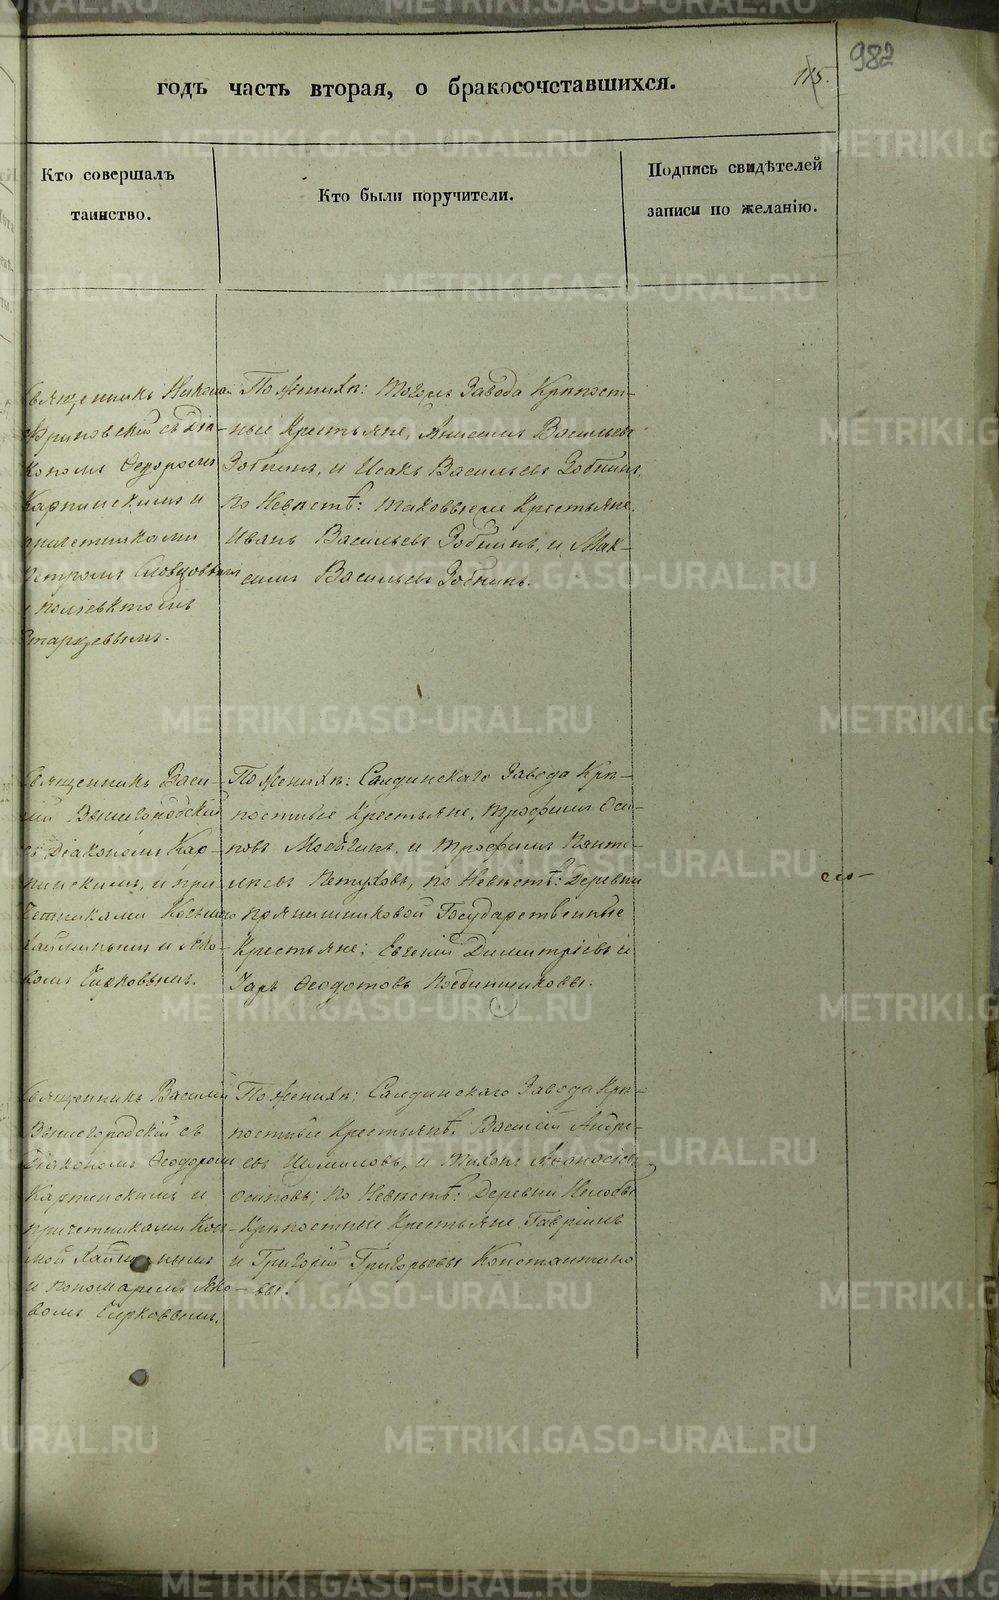 982
115.
годъ часть вторая, о бракосочставшихся.
Кто совершалъ
таинство.
Кто были поручители.
Подпись свидѣтелей
записи по желанію.
Священникъ Никола
съ Діа-
кономъ Ѳедоромъ
Карпинскимъ и
причетниками
Петромъ Словцовымъ
и Поліевктомъ
Старцевымъ.
По женихѣ: тогожъ завода Крѣпост-
ные Крестьяне, Анисимъ Васильевъ
Зобнинъ, и Исакъ Васильевъ Зобнинъ,
по Невѣстѣ: таковыеже Крестьяне.
Иванъ Васильевъ Зобнинъ, и Мак-
симъ Васильевъ Зобнинъ.
Священникъ Васи-
лій Вышегородскій
съ Діакономъ Кар-
пинскимъ, и при-
четниками Космою
и Яко-
вомъ Чирковымъ.
По женихѣ: Салдинскаго завода Крѣ-
постные Крестьяне, Трофимъ Оси-
повъ и Трофимъ Панте-
лѣевъ Пѣтуховъ, по Невѣстѣ: Деревни
Прянишниковой Государственные
Крестьяне; Евгеній Димитріевъ и
Ѳеодотовъ
Священникъ Василій
Вышегородскій съ
Діакономъ Ѳеодоромъ
Карпинскимъ и
причетниками Кос-
мой
и пономаремъ Яко-
вомъ Чирковымъ.
По женихѣ: Салдинскаго завода Крѣ-
постные Крестьянѣ. Василій Андре-
евъ Шумиловъ, и Тихонъ Аѳанасьевъ
Осиповъ; по Невѣстѣ: Деревни Нелобы
Крѣпостные Крестьяне Гавріилъ
и Григорій Григорьевы Константино
-вы.
METRIKI.GASO-URAL.RU